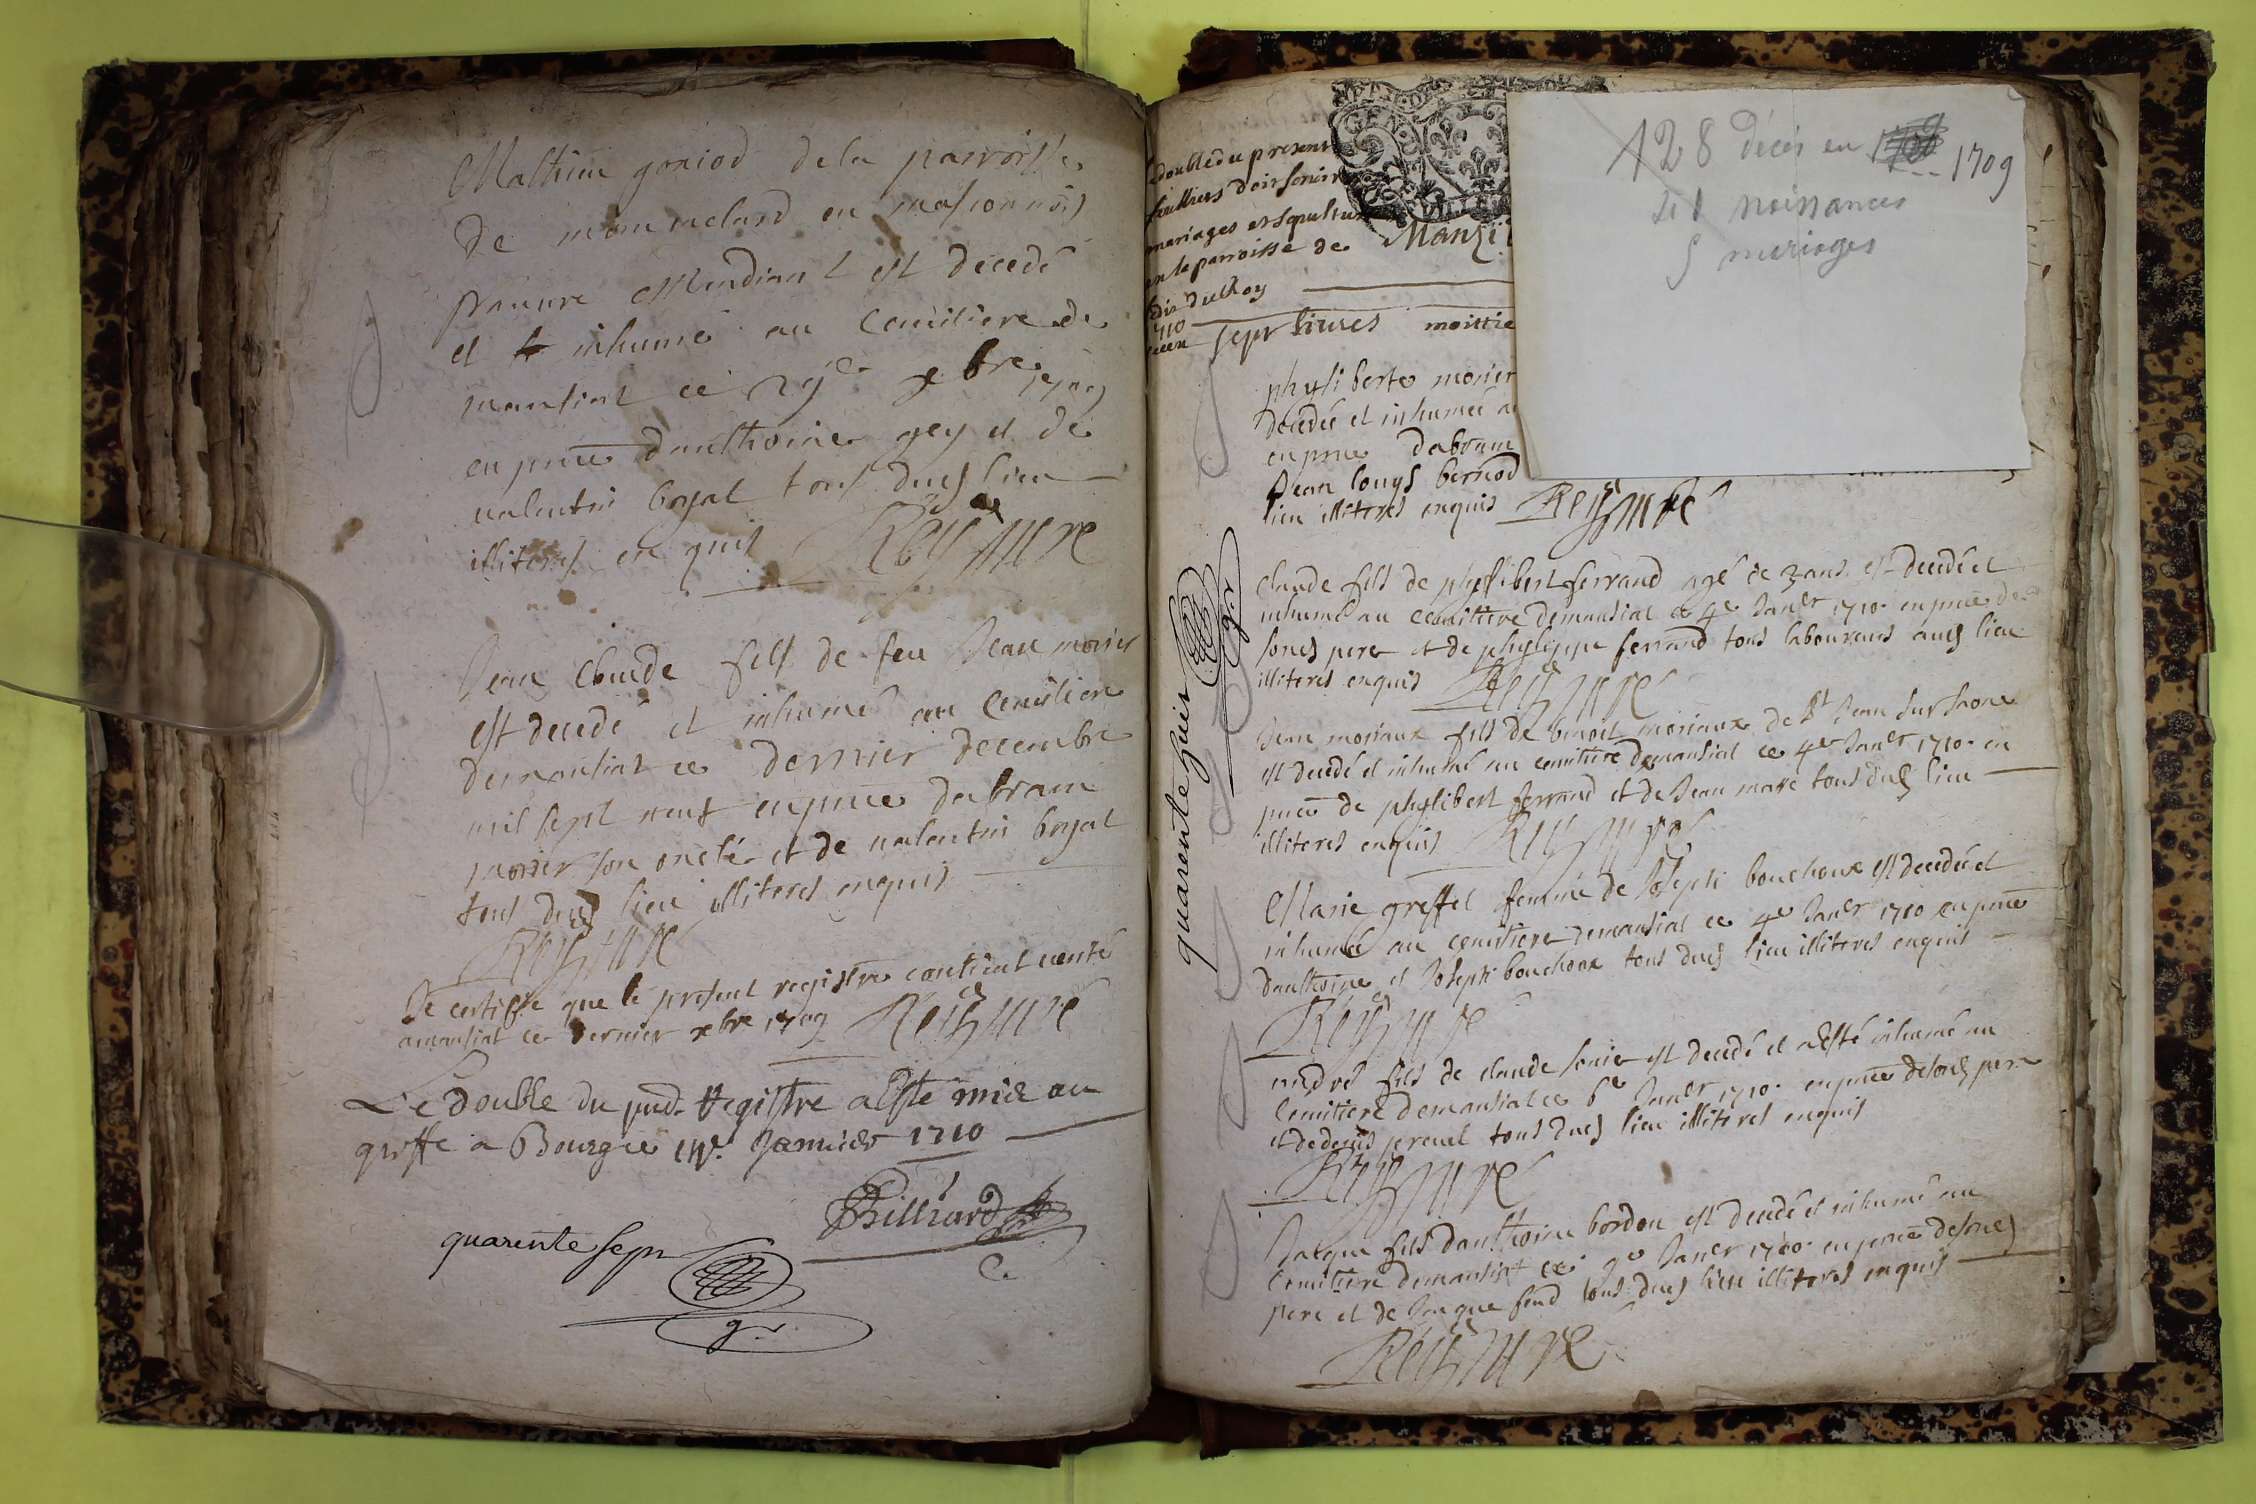 Mathieu goniod de la parroisse
de mommelard en masconnois
pauure Mendiant est decedé
et inhumé au Cemitiere de
mansiat ce 29e xbre 1709
en pnce danthoine gey et de
valentin boyat tous dud lieu
illiteres enquis Rey cure
Jean Claude fils de feu Jean morier
est decedé et inhumé au Cemitiere
demansiat ce dernier decembre
mil sept neuf enpnce dabram
morier son oncle et de valentin boyat
tous dud lieu illiteres enquis
Rey cure
Je certiffie que le present registre contient verité
amansiat ce dernier xbre 1709 Rey curé
Le double du pnt Registre a Esté mis au
greffe a Bourg ce Janvier 1710
Billiard
quarente sept
128 décés en 1709
naissances
5 mariages
double du present
feuillets doit seruir
mariages et sepultur
en la parroisse de Manzi
dic du Roy
1710
sept liures moittie
phyliberte morier
decedée et inhumée a
en pnce dabram
Jean louys bernod
lieu illiteres enquis Rey curé
quarente huit
Claude fils de phylibert ferrand agé de 3 ans est decedé et
inhumé au Cemitiere demansiat ce 4e Janer 1710 en pnce de
sond pere et de phylippe ferrand tous laboureurs aud lieu
illiteres enquis Rey curé
Jean moriaux fils de benoit moriaux de St Jean sur saone
est decedé et inhumé au cemitiere demansiat ce 4e Janer 1710 en
pnce de phylibert ferrand et de Jean mare tous dud lieu
illiteres enquis Rey curé
Marie greffet femme de Joseph bouchoux est decedée et
inhumée au cemitiere demansiat ce 4e Janer 1710 en pnce
danthoine et Joseph bouchoux tous dud lieu illiteres enquis
Rey curé
andré fils de claude est decedé et a esté inhumé au
Cemitiere demansiat ce 6e Janer 1710 en pnce desond pere
et de denis tous dud lieu illiteres enquis
Rey curé
Jacque fils danthoine bordon est decedé et inhumé au
Cemitiere demansiat ce 9e Janer 1710 en pnce desond
pere et de Jacque feud tous dud lieu illiteres enquis
Rey curé